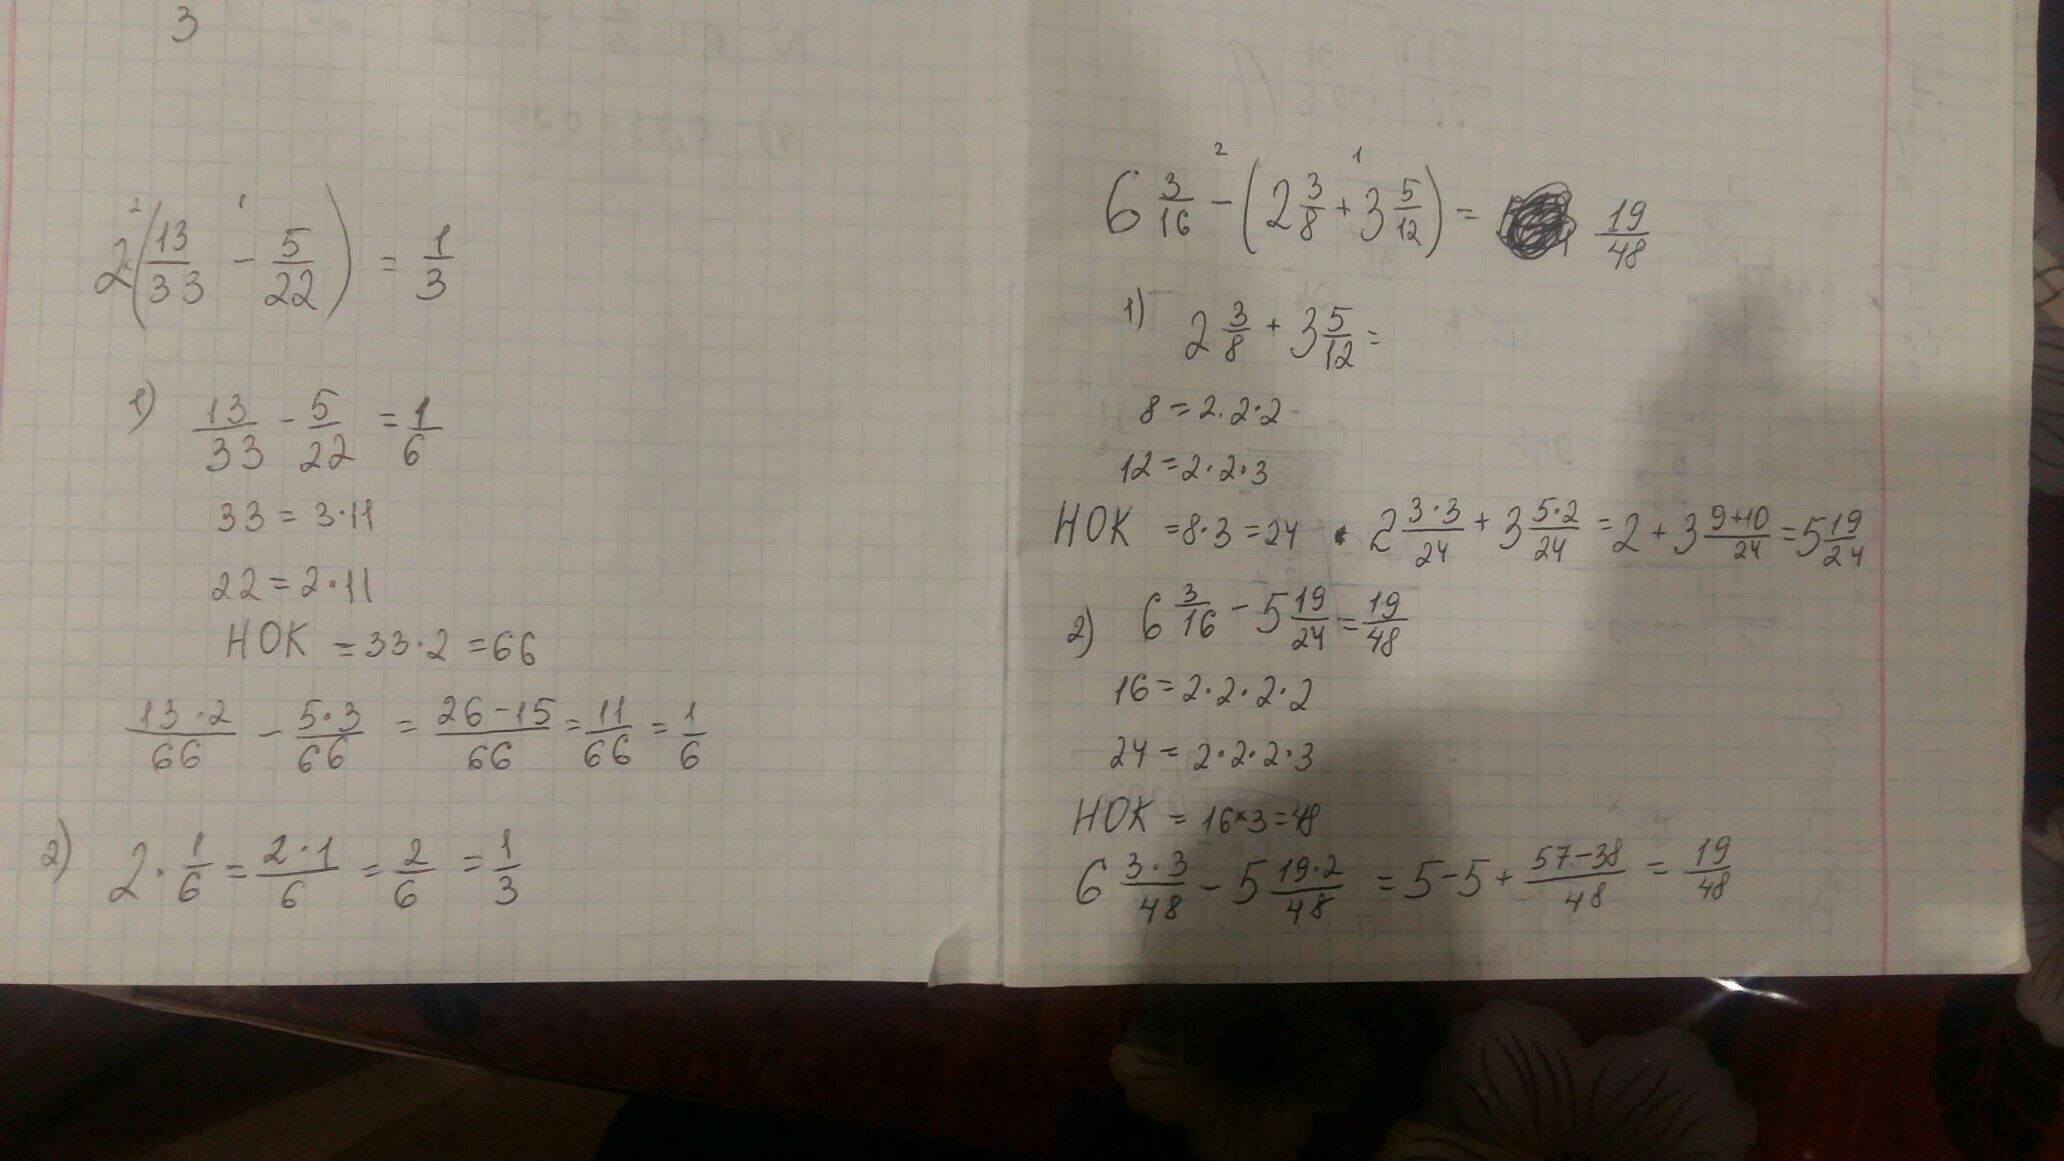 3
2(13/33 - 5/22) = 1/3
1) 13/33 - 5/22 = 1/6
33 = 3·11
22 = 2·11
НОК = 33·2 = 66
13·2/66 - 5·3/66 = 26-15/66 = 11/66 = 1/6
2) 2·1/6 = 2·1/6 = 2/6 = 1/3
6 3/16 - (2 3/8 + 3 5/12) = 19/48
1) 2 3/8 + 3 5/12 =
8 = 2·2·2
12 = 2·2·3
НОК = 8·3 = 24 · 2 3·3/24 + 3 5·2/24 = 2 + 3 9+10/24 = 5 19/24
2) 6 3/16 - 5 19/24 = 19/48
16 = 2·2·2·2
24 = 2·2·2·3
НОК = 16×3 = 48
6 3·3/48 - 5 19·2/48 = 5-5 + 57-38/48 = 19/48